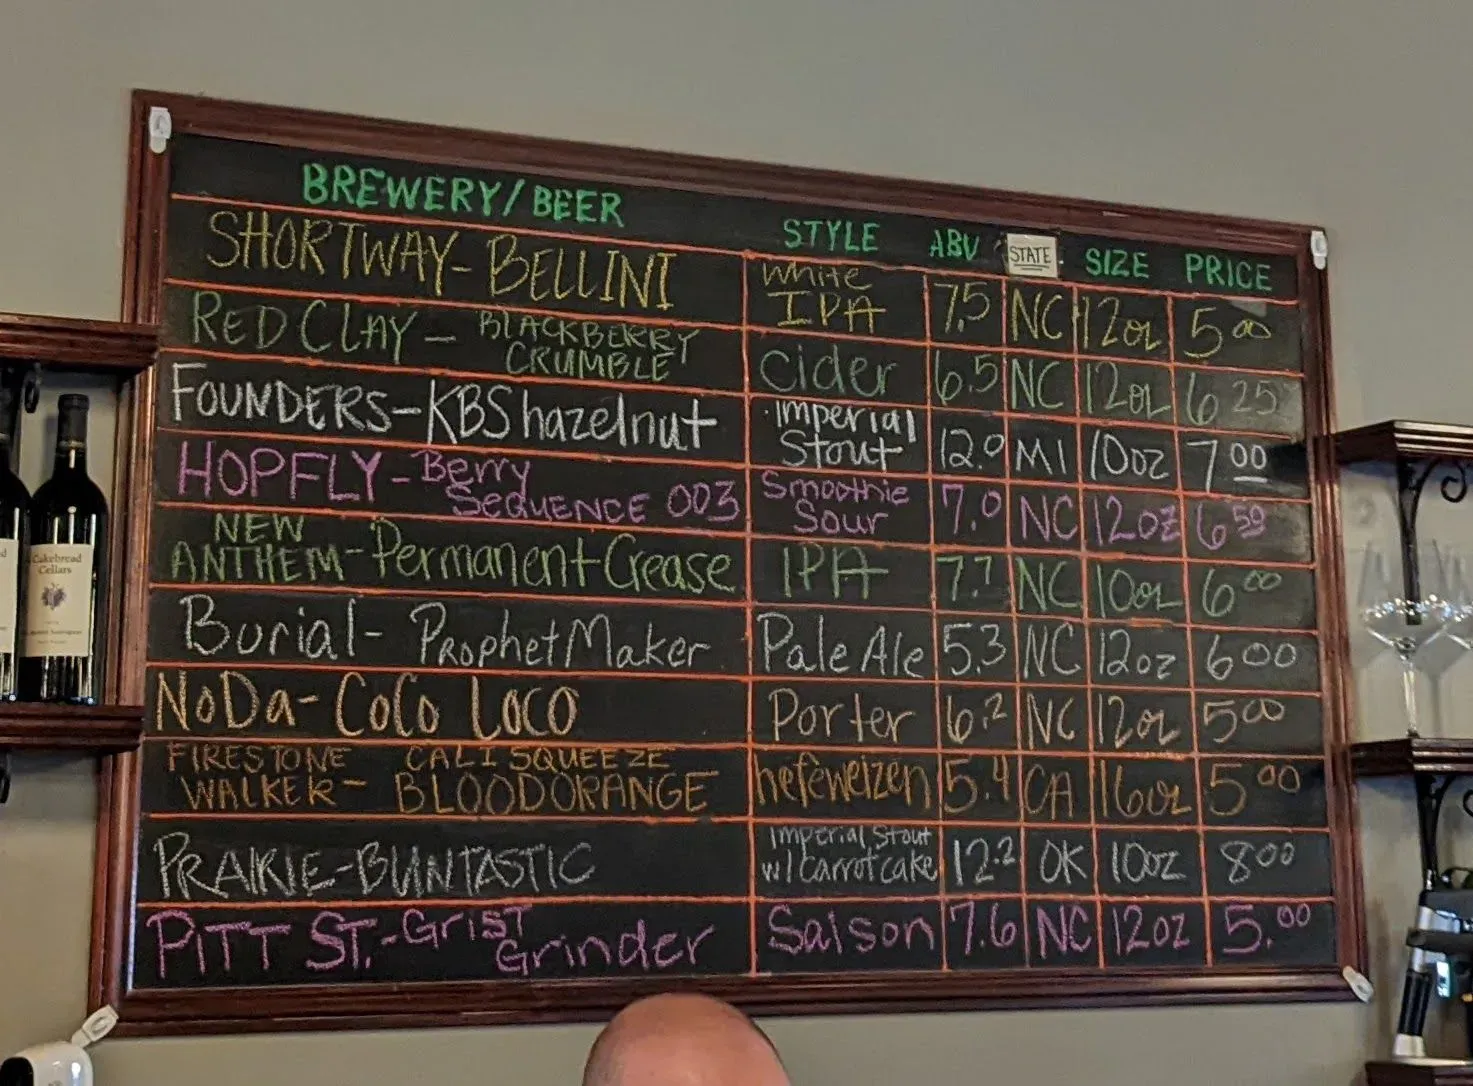 BREWERY/BEER STYLE ABV STATE SIZE PRICE
SHORTWAY-BELLINI White IPA 7.5 NC 12oz 5.00
RED CLAY - BLACKBERRY CRUMBLE Cider 6.5 NC 12oz 6.25
FOUNDERS-KBS hazelnut Imperial Stout 12.0 MI 10oz 7.00
HOPFLY-Berry SEQUENCE 003 Smoothie Sour 7.0 NC 12oz 6.50
NEW ANTHEM-Permanent Crease IPA 7.7 NC 10oz 6.00
Burial- Prophet Maker Pale Ale 5.3 NC 12oz 6.00
NoDa-CoCo Loco Porter 6.2 NC 12oz 5.00
FIRESTONE WALKER- CALI SQUEEZE BLOODORANGE hefeweizen 5.4 CA 16oz 5.00
PRAIRIE-BUNTASTIC Imperial Stout w/ Carrot cake 12.2 OK 10oz 8.00
PITT ST.-GRIST Grinder Saison 7.6 NC 12oz 5.00
Cakebread
Cellars